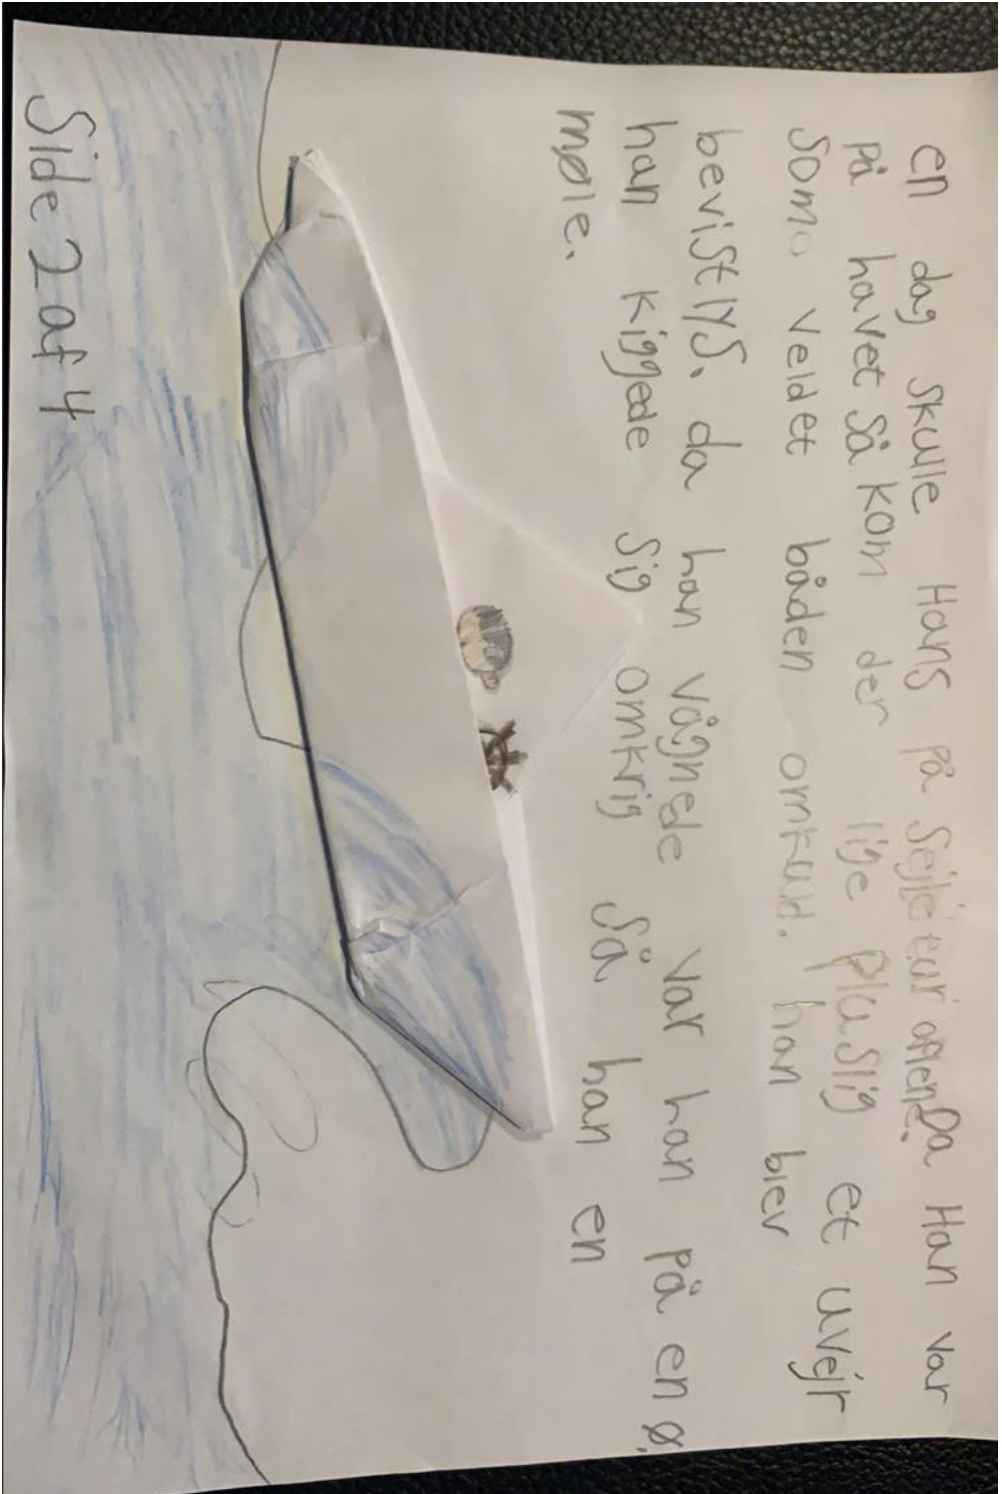 en dag skulle Hans på Sejletur alene. Da Han var
på havet Så kom der lige pluslig et uvejr
som veldet båden omkuld. han blev
bevistlys. da han vågnede var han på en ø.
han kiggede sig omkrig Så han en
møle.
Side 2 af 4